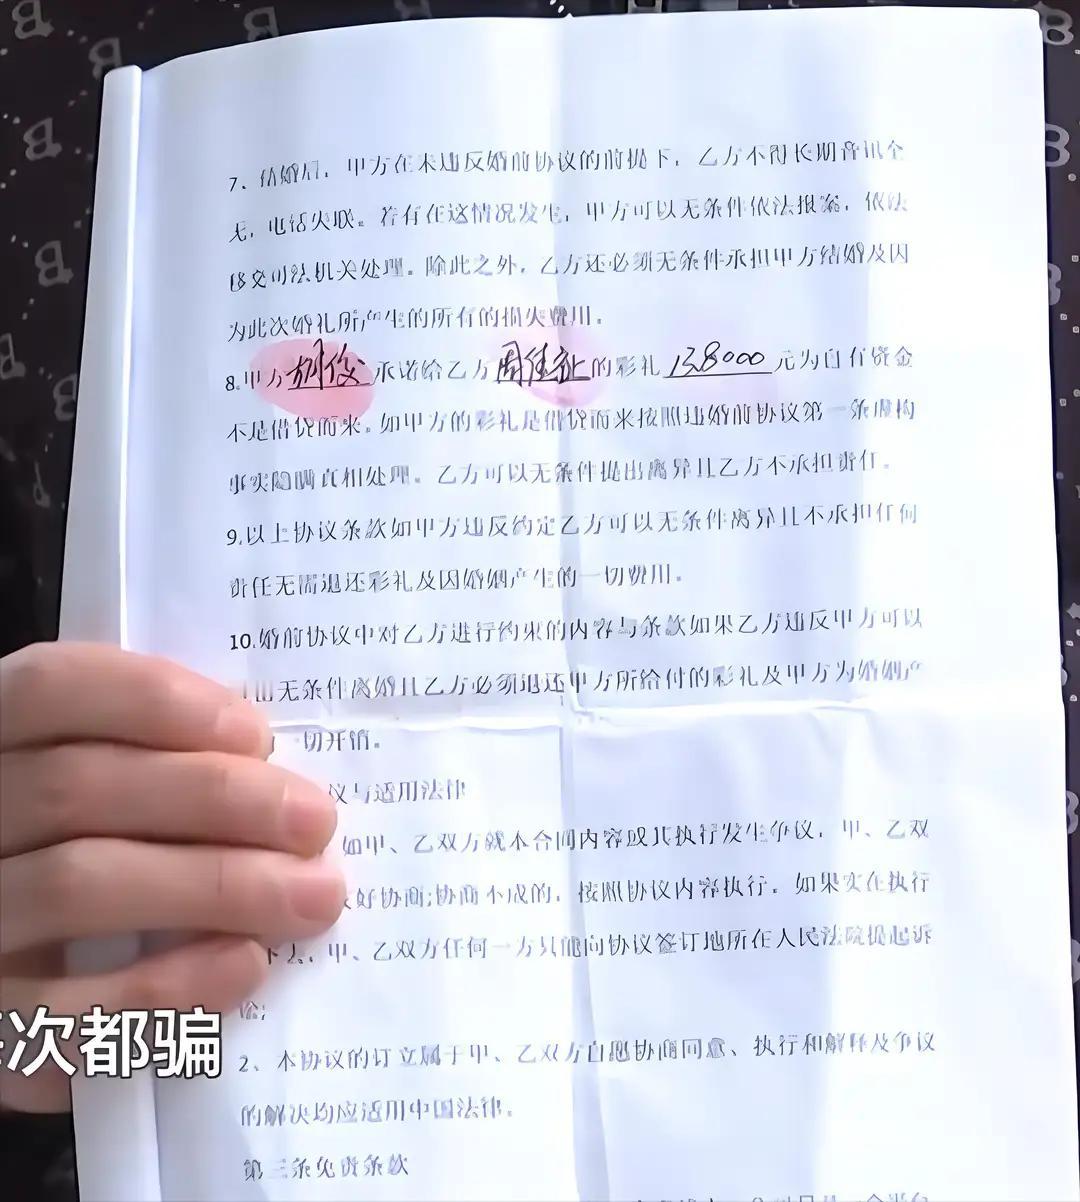 7、结婚后，甲方在未违反婚前协议的前提下，乙方不得长期音讯全
无，电话失联。若有在这情况发生，甲方可以无条件依法报案，依法
移交司法机关处理。除此之外，乙方还必须无条件承担甲方结婚及因
为此次婚礼所产生的所有的损失费用。
8.甲方 承诺给乙方周佳 的彩礼138000元为自有资金
不是借贷而来。如甲方的彩礼是借贷而来按照违婚前协议第一条虚构
事实隐瞒真相处理。乙方可以无条件提出离异且乙方不承担责任。
9.以上协议条款如甲方违反约定乙方可以无条件离异且不承担任何
责任无需退还彩礼及因婚姻产生的一切费用。
10.婚前协议中对乙方进行约束的内容与条款如果乙方违反甲方可以
出无条件离婚且乙方必须退还甲方所给付的彩礼及甲方为婚姻产
一切开销。
议与适用法律
如甲、乙双方就本合同内容或其执行发生争议，甲、乙双
友好协商;协商不成的，按照协议内容执行。如果实在执行
下去，甲、乙双方任何一方只能向协议签订地所在人民法院提起诉
讼;
2、本协议的订立属于甲、乙双方自愿协商同意、执行和解释及争议
的解决均应适用中国法律。
第三条免责条款
次都骗